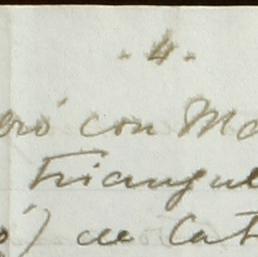 . 4 .
eró con Ma
triangul
ó) de Cat